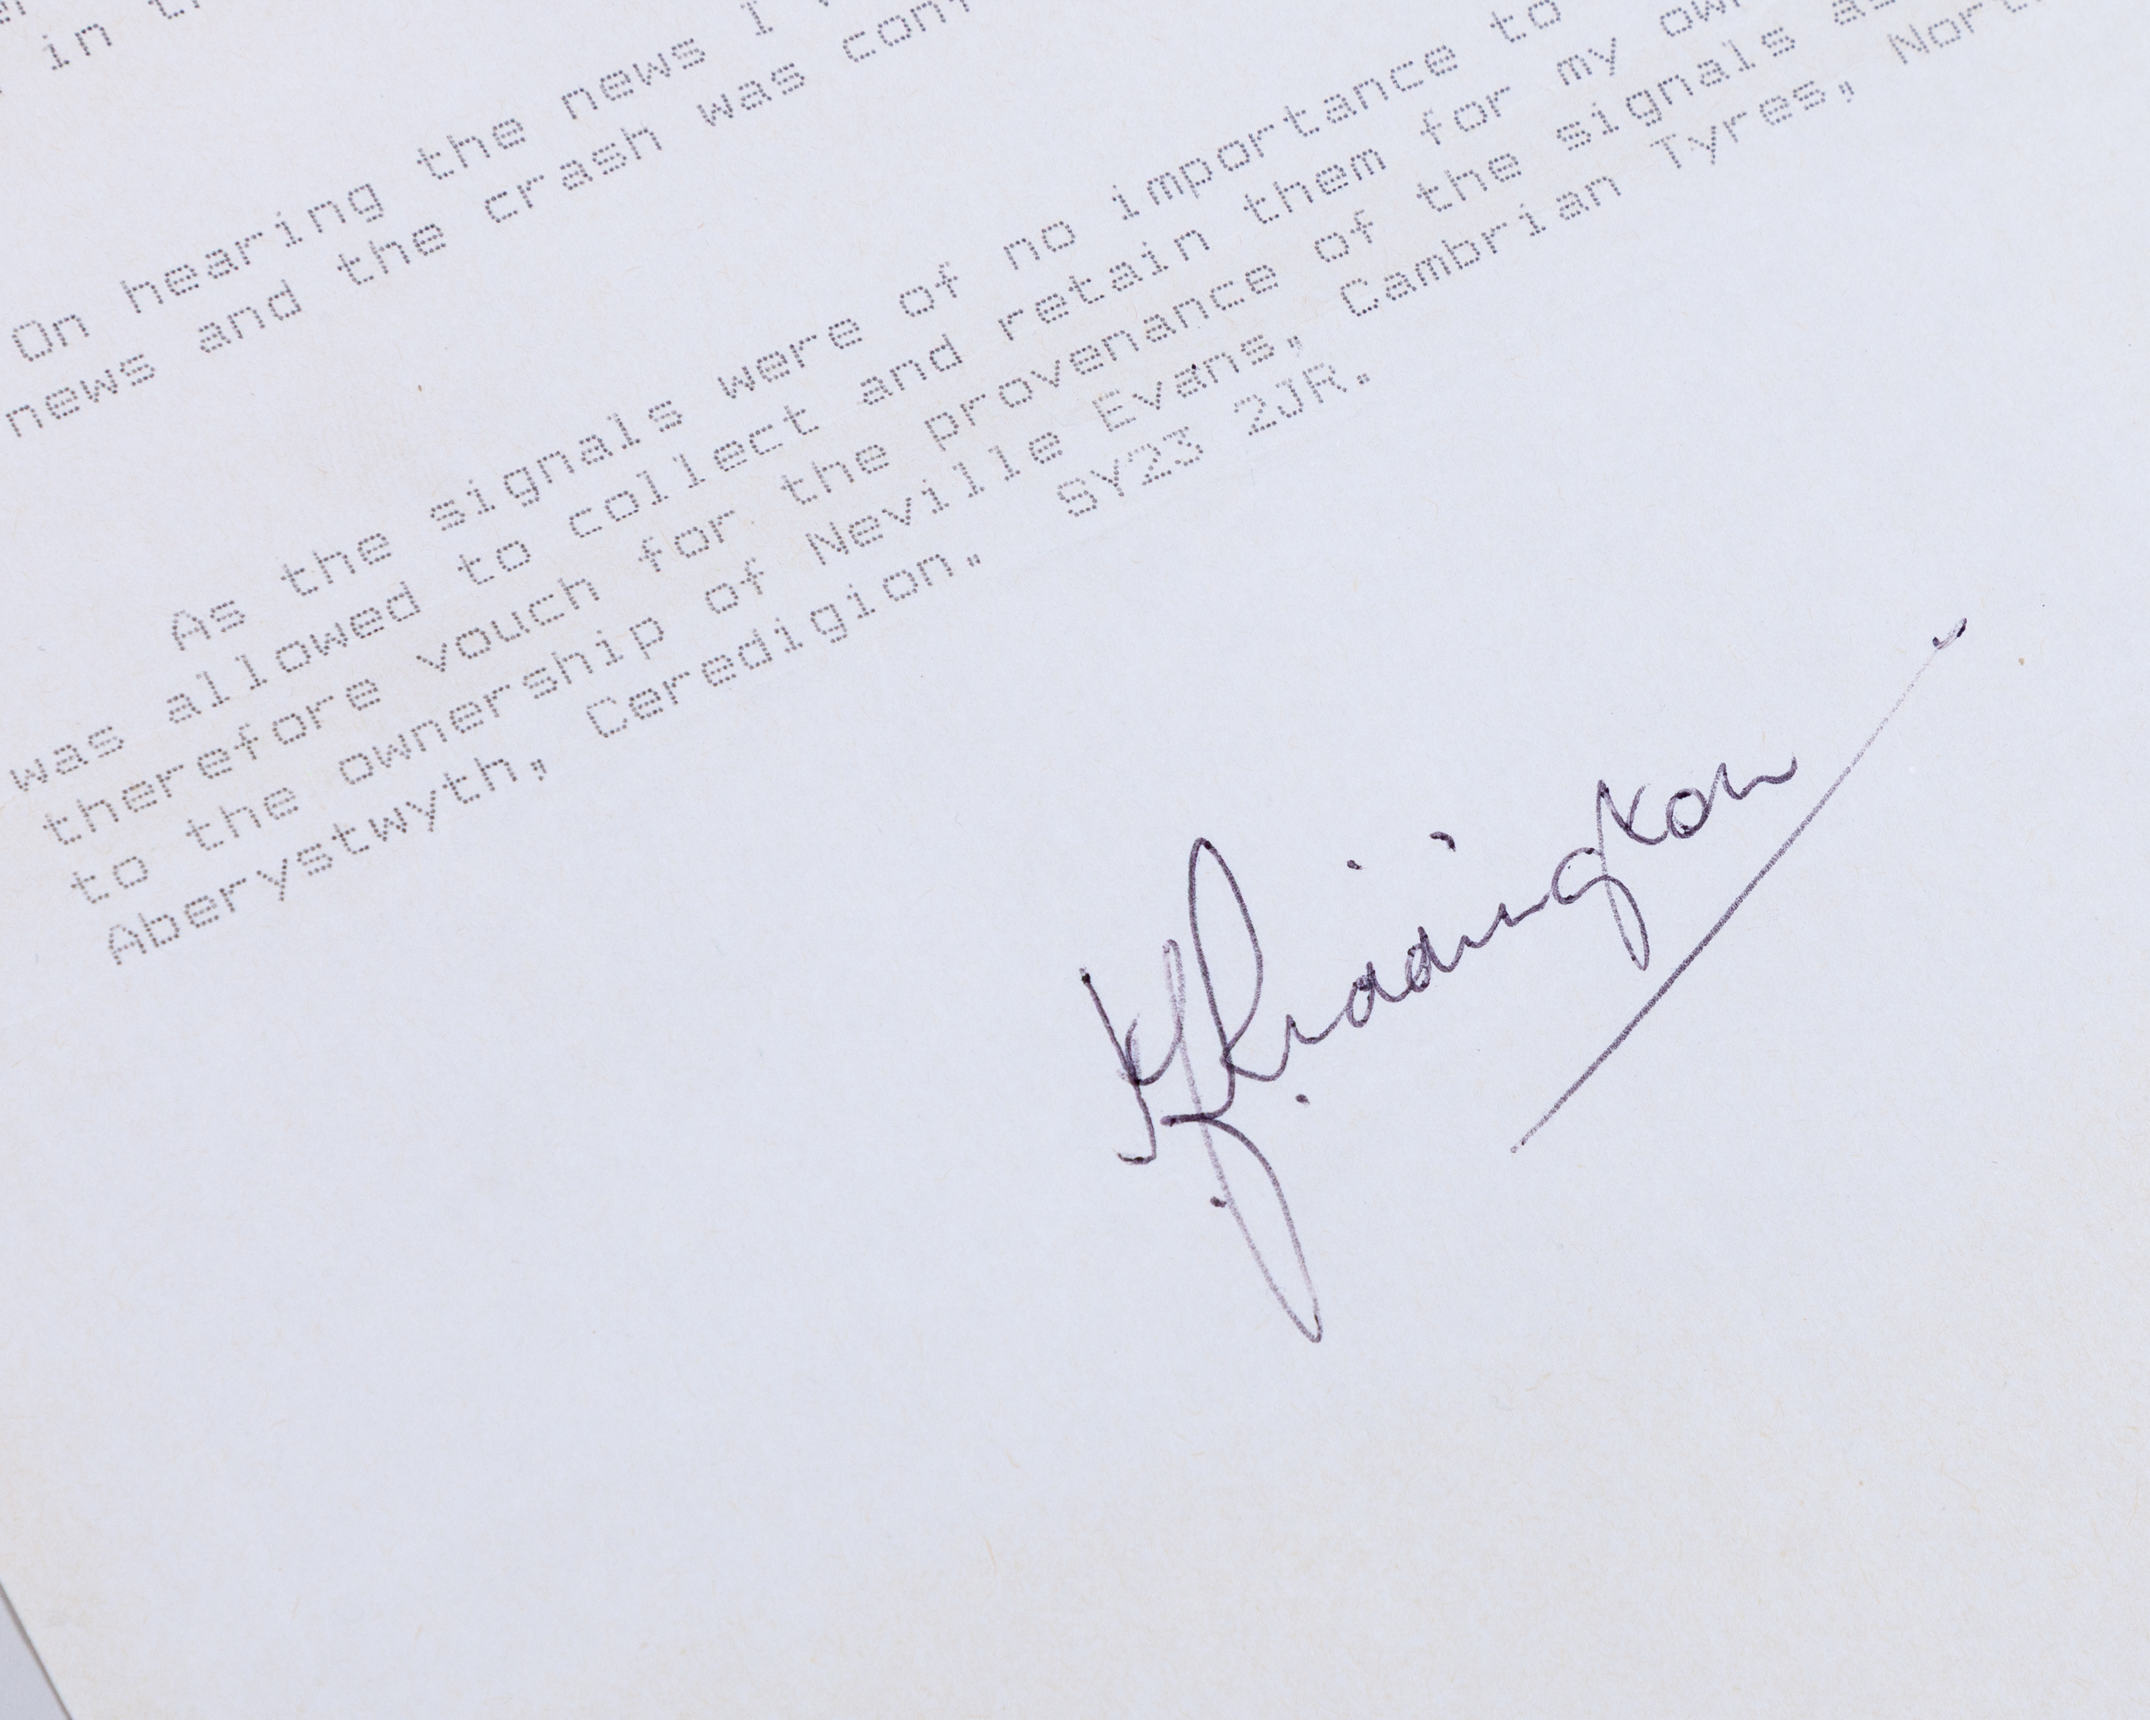 in t
On hearing the news I
news and the crash was con
As the signals were of no importance to
was allowed to collect and retain them for my ow
therefore vouch for the provenance of the signals as
to the ownership of Neville Evans, Cambrian Tyres, Nort
Aberystwyth, Ceredigion. SY23 2JR.
K.J. Riddington